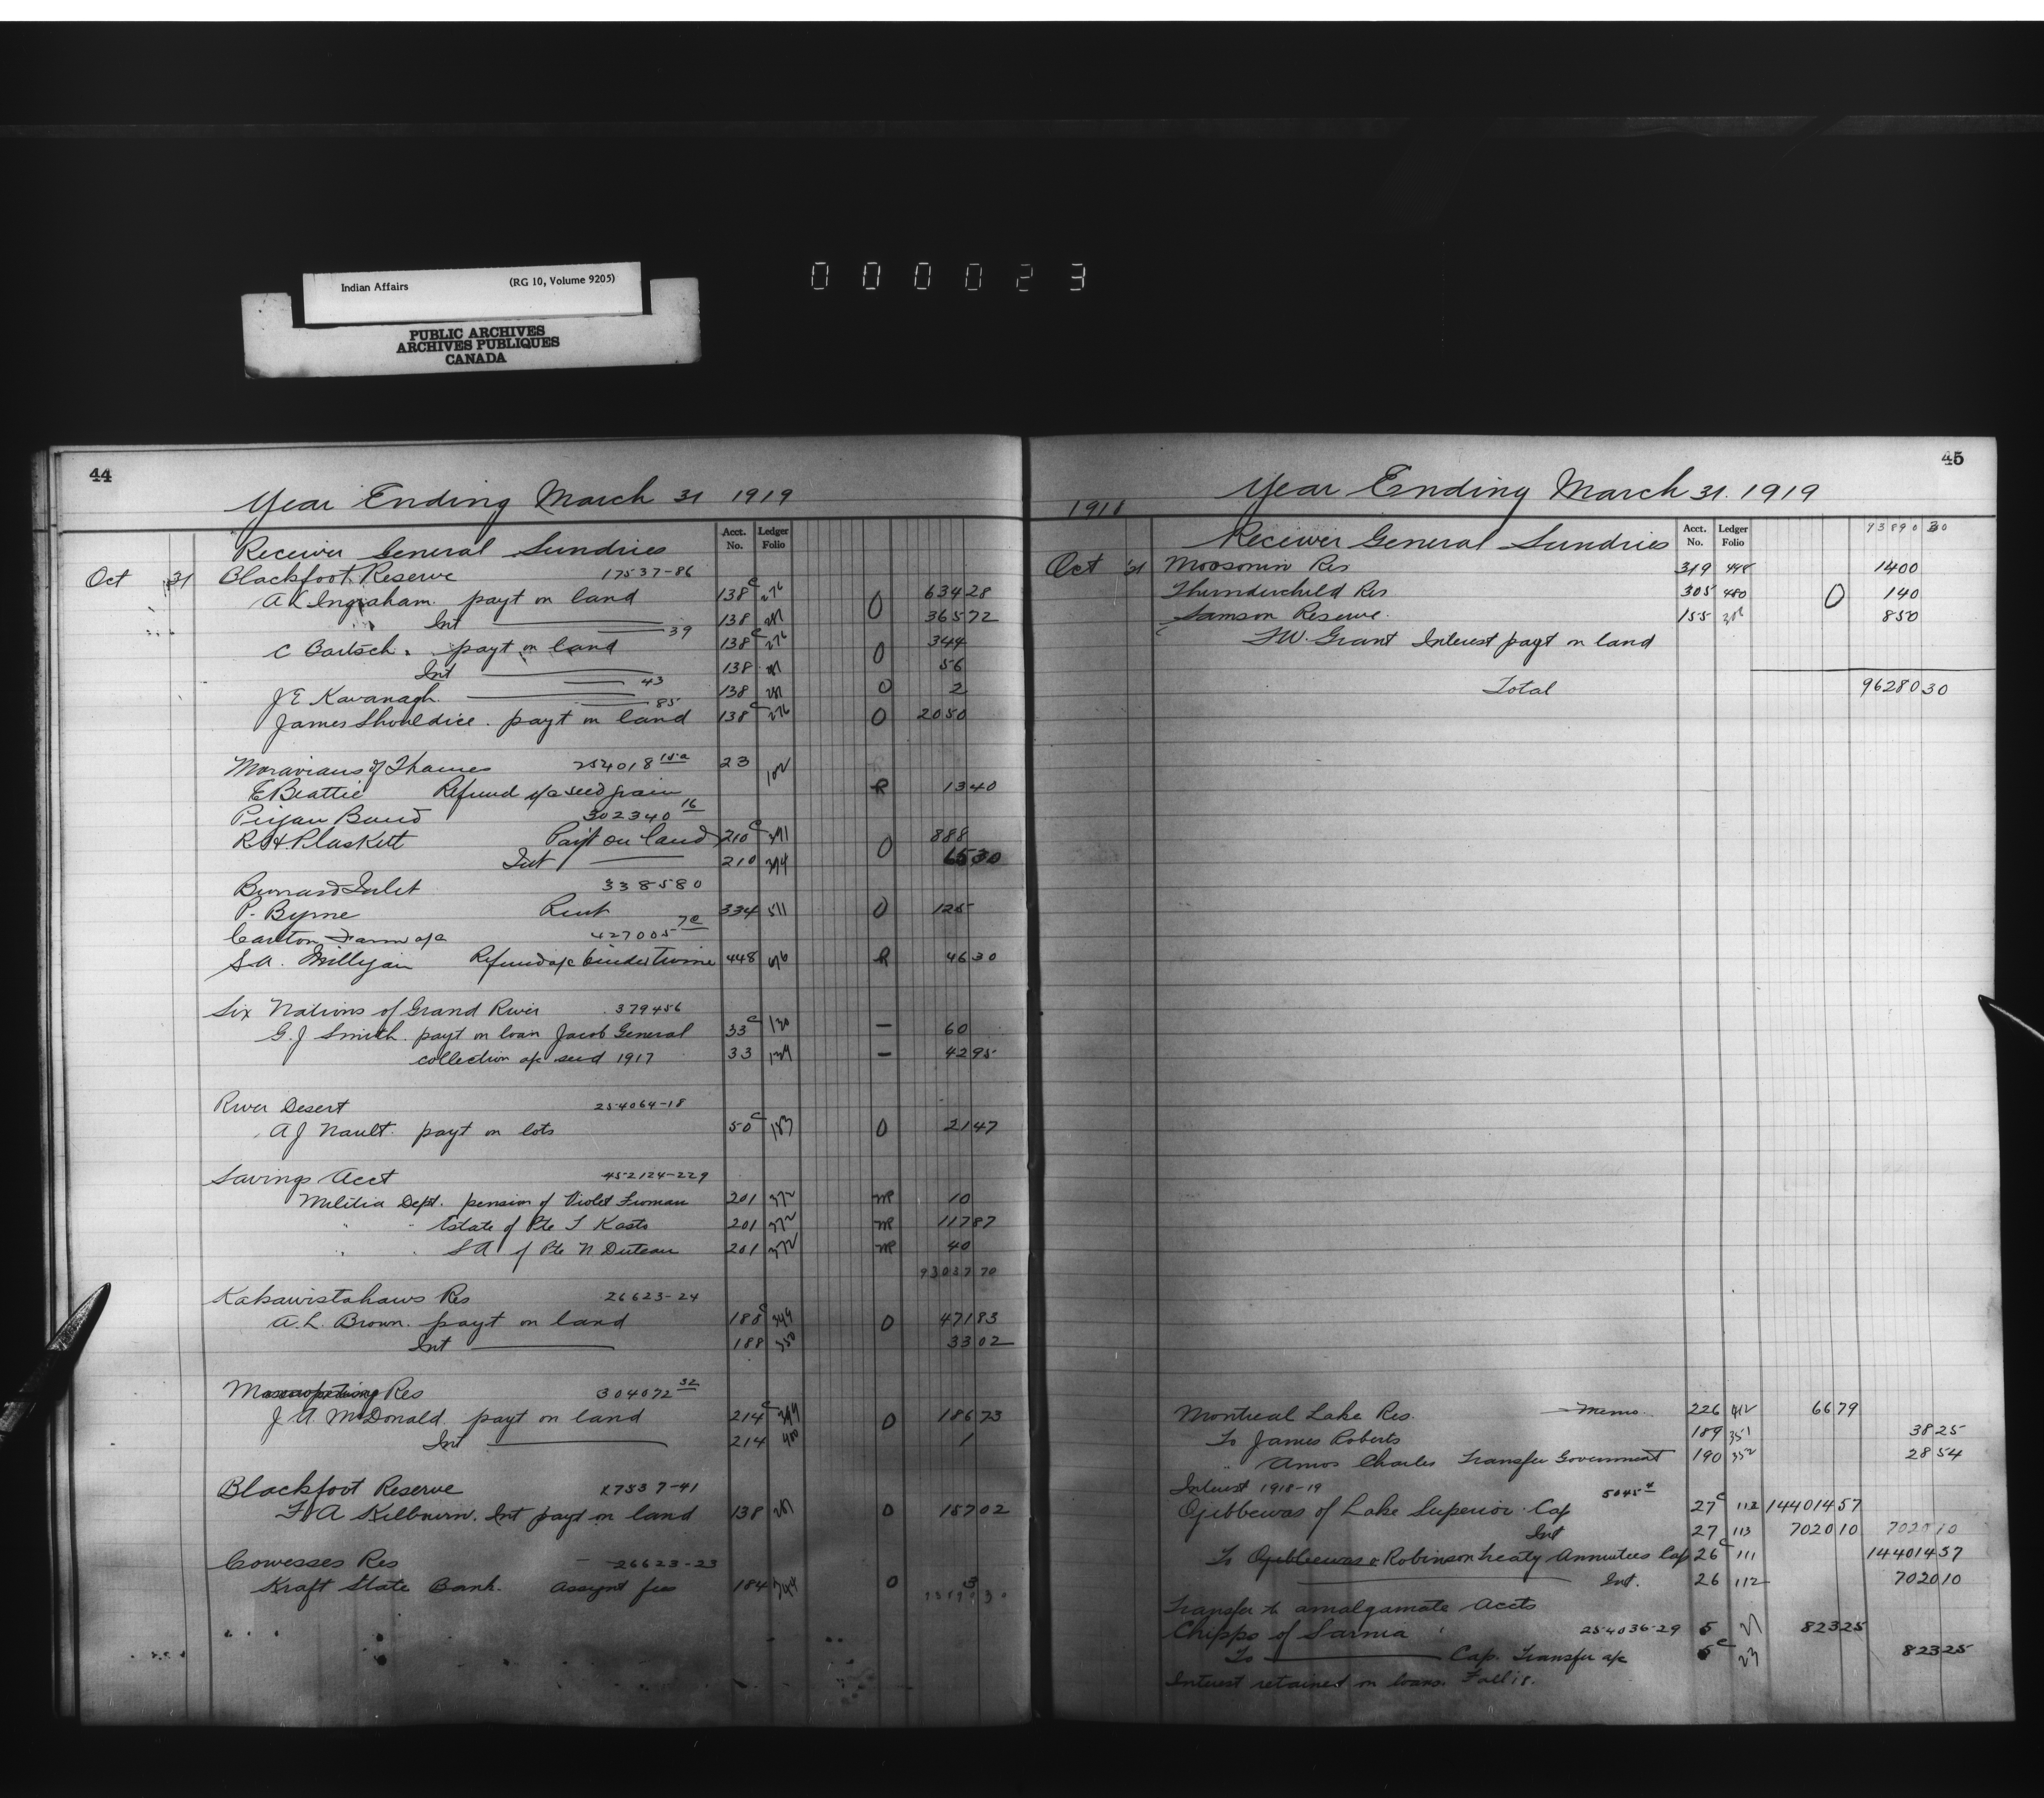 Indian Affairs (RG 10, Volume 9205)
PUBLIC ARCHIVES
ARCHIVES PUBLIQUES
CANADA
000023
44
Year Ending March 31 1919
Acct. No. Ledger Folio
Receiver General Sundries
Oct 31 Blackfoot Reserve 17537-86
A L Ingraham payt on land 138c 276 0 634 28
Int 138 281 365 72
39
C Bartsch payt on land 138c 276 0 344
Int 138 281 56
43
J E Kavanagh 138 281 0 2
85
James Shouldice payt on land 138c 276 0 2050
Moravians of Thames 254018 15a 23 102
E Beattie Refund a/c seed grain R 13 40
Piegan Band 302340 16
R H. Plaskett Payt on land 210c 391 0 888
Int 210 394 65 30
Burrard Inlet 338580
P. Byrne Rent 334 511 0 125
Carlton Farm a/c 427005 7c
S. A. Milligan Refund a/c binder twine 448 616 R 46 30
Six Nations of Grand River 379456
G. J Smith payt on loan Jacob General 33c 130 — 60
collection a/c seed 1917 33 134 — 42 95
River Desert 254064-18
A J Nault payt on lots 50c 183 0 21 47
Savings Acct 452124-229
Militia Dept. pension of Violet Froman 201 372 MR 10
" " Estate of Pte T Kasto 201 372 MR 117 87
" " S A of Pte N Duteau 201 372 MR 40
93037 70
Kakawistahaws Res 26623-24
A. L. Brown payt on land 188c 349 0 471 83
Int 188 350 33 02
Muscowpetung Res 304072 32
J A McDonald payt on land 214c 399 0 186 73
Int 214 400 1
Blackfoot Reserve 17537-41
F A Kilbourn. Int payt on land 138 281 0 157 02
Cowesses Res 26623-23
Kraft State Bank. Assignt fees 184 344 0 3
93890 30
45
Year Ending March 31. 1919
1918
Acct. No. Ledger Folio 93890 30
Receiver General Sundries
Oct 31 Moosomin Res 319 498 1400
Thunderchild Res 305 480 0 140
Samson Reserve 155 850
F W. Grant Interest payt on land
Total 96280 30
Montreal Lake Res. Memo. 226 412 66 79
To James Roberts 189 351 38 25
" Amos Charles Transfer Government 190 352 28 54
Interest 1918-19 5045 4
Ojibbewas of Lake Superior Cap 27c 112 144014 57
Int 27 113 7020 10 7020 10
To Ojibbewas & Robinson Treaty Annuitees Cap 26c 111 144014 57
Int. 26 112 7020 10
Transfer to amalgamate Accts
Chipps of Sarnia 254036-29 5 21 823 25
To Cap. Transfer a/c 5c 23 823 25
Interest retained on loans Fall 18.